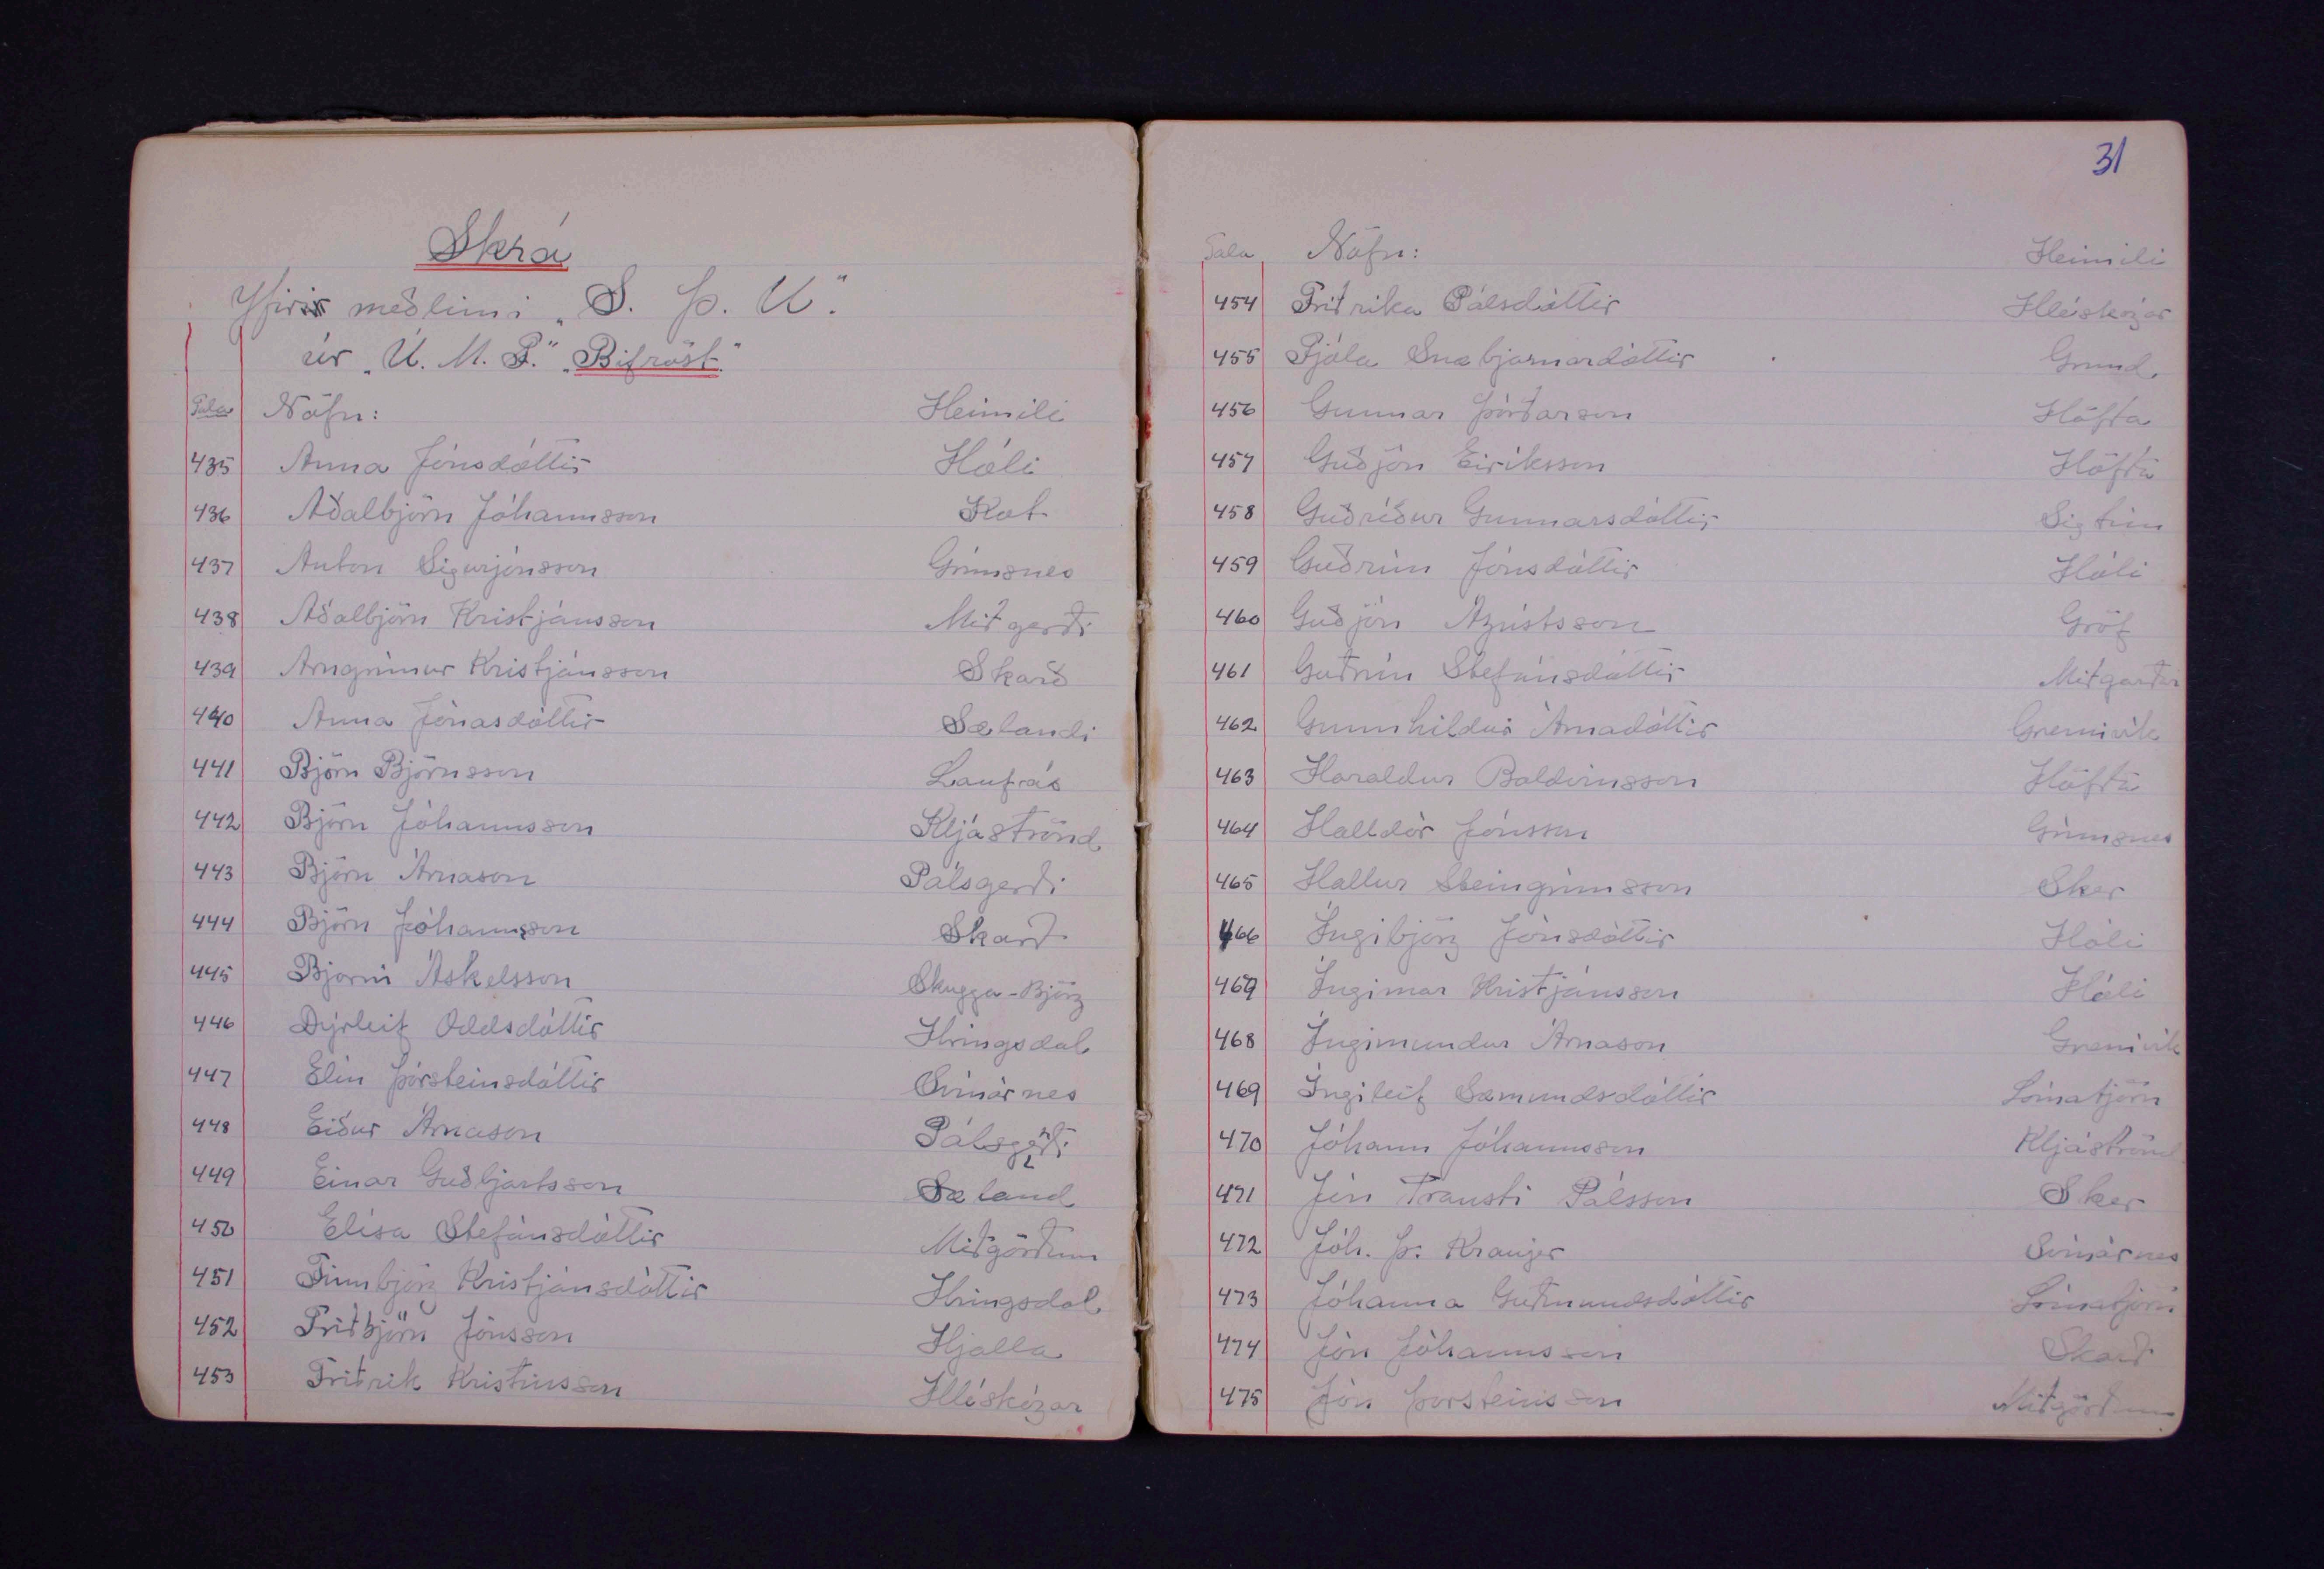 Skrá
Yfir meðlimi „S. Þ. U."
úr „U. M. F." „Bifröst"
Tala Nöfn: Heimili
435 Anna Jónsdóttir Hóli
436 Aðalbjörn Jóhannsson Kot
437 Anton Sigurjónsson Grímsnes
438 Aðalbjörn Kristjánsson Miðgerði
439 Arngrímur Kristjánsson Skarð
440 Anna Jónasdóttir Sælandi
441 Björn Björnsson Laufás
442 Björn Jóhannsson Kljáströnd
443 Björn Árnason Pálsgerði
444 Björn Jóhannsson Skarð
445 Bjarni Áskelsson Skugga-Björg
446 Dýrleif Oddsdóttir Hringsdal
447 Elín Þórsteinsdóttir Svínárnes
448 Eiður Árnason Pálsgerði
449 Einar Guðbjartsson Sæland
450 Elísa Stefánsdóttir Miðgörðum
451 Finnbjörg Kristjánsdóttir Hringsdal
452 Friðbjörn Jónsson Hjalla
453 Friðrik Kristinsson Hléskógar
31
Tala Nöfn: Heimili
454 Friðrika Pálsdóttir Hléskógar
455 Fjóla Snæbjarnardóttir Grund
456 Gunnar Þórðarson Höfða
457 Guðjón Eiríksson Höfða
458 Guðríður Gunnarsdóttir Sigtún
459 Guðrún Jónsdóttir Hóli
460 Guðjón Ágústsson Gröf
461 Guðrún Stefánsdóttir Miðgarðar
462 Gunnhildur Árnadóttir Grenivík
463 Haraldur Baldvinsson Höfða
464 Halldór Jónsson Grímsnes
465 Hallur Steingrímsson Sker
466 Ingibjörg Jónsdóttir Hóli
469 Ingimar Kristjánsson Hóli
468 Ingimundur Árnason Grenivík
469 Ingileif Sæmundsdóttir Lómatjörn
470 Jóhann Jóhannsson Kljáströnd
471 Jón Trausti Pálsson Sker
472 Jóh. Þ. Kröyer Svínárnes
473 Jóhanna Guðmundsdóttir Lómatjörn
474 Jón Jóhannsson Skarð
475 Jón Þorsteinsson Miðgörðum